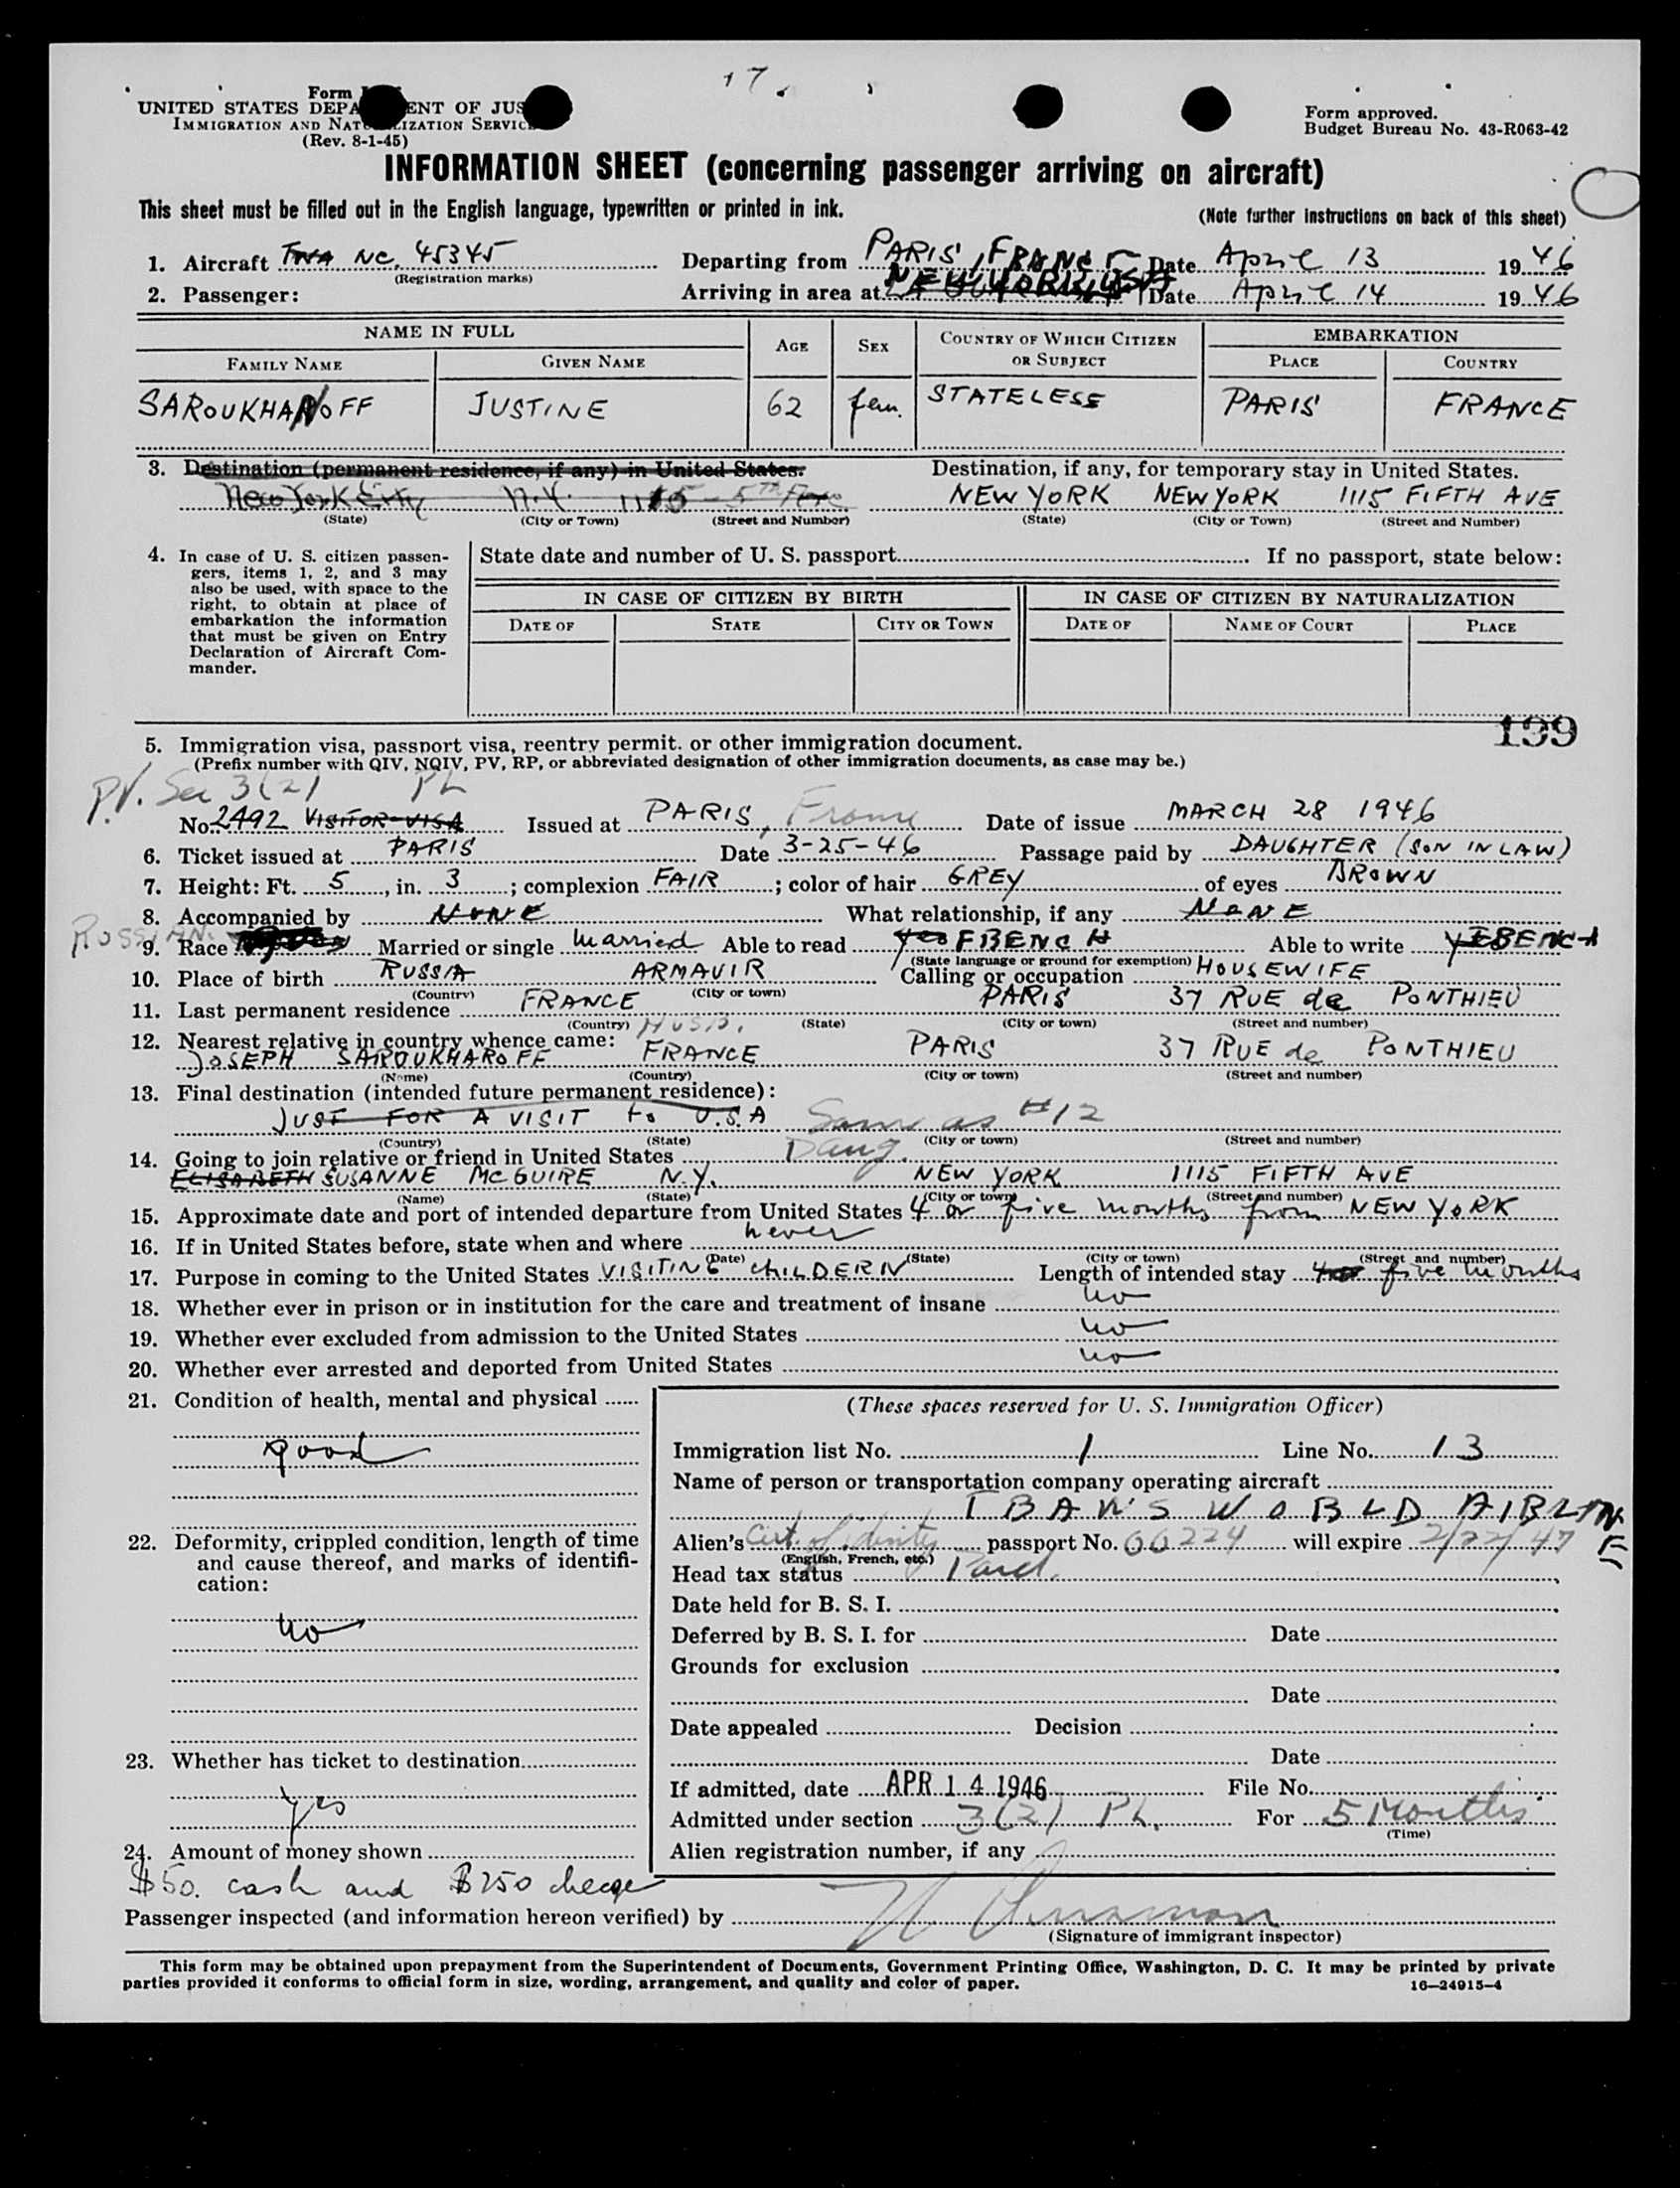 17.
Form
UNITED STATES DEPA ENT OF JUS
IMMIGRATION AND NAT LIZATION SERVIC
(Rev. 8-1-45)
Form approved.
Budget Bureau No. 43-R063-42
INFORMATION SHEET (concerning passenger arriving on aircraft)
This sheet must be filled out in the English language, typewritten or printed in ink.
(Note further instructions on back of this sheet)
1. Aircraft TWA NC. 45345 Departing from PARIS, FRANCE Date April 13 1946
(Registration marks)
2. Passenger: Arriving in area at NEW YORK, USA Date April 14 1946
NAME IN FULL AGE SEX COUNTRY OF WHICH CITIZEN OR SUBJECT EMBARKATION
FAMILY NAME GIVEN NAME PLACE COUNTRY
SAROUKHANOFF JUSTINE 62 fem. STATELESS PARIS FRANCE
3. Destination (permanent residence, if any) in United States. Destination, if any, for temporary stay in United States.
New York City N.Y. 1115 - 5th Ave NEW YORK NEW YORK 1115 FIFTH AVE
(State) (City or Town) (Street and Number) (State) (City or Town) (Street and Number)
4. In case of U. S. citizen passen-
gers, items 1, 2, and 3 may
also be used, with space to the
right, to obtain at place of
embarkation the information
that must be given on Entry
Declaration of Aircraft Com-
mander.
State date and number of U. S. passport If no passport, state below:
IN CASE OF CITIZEN BY BIRTH IN CASE OF CITIZEN BY NATURALIZATION
DATE OF STATE CITY OR TOWN DATE OF NAME OF COURT PLACE
199
5. Immigration visa, passport visa, reentry permit. or other immigration document.
(Prefix number with QIV, NQIV, PV, RP, or abbreviated designation of other immigration documents, as case may be.)
P.V. Sec 3(2) PL
No. 2492 VISITOR-VISA Issued at PARIS, France Date of issue MARCH 28 1946
6. Ticket issued at PARIS Date 3-25-46 Passage paid by DAUGHTER (SON IN LAW)
7. Height: Ft. 5, in. 3; complexion FAIR; color of hair GREY of eyes BROWN
8. Accompanied by NONE What relationship, if any NONE
RUSSIAN.
9. Race Married or single married Able to read yes FRENCH Able to write FRENCH
(State language or ground for exemption)
10. Place of birth RUSSIA ARMAVIR Calling or occupation HOUSEWIFE
(Country) (City or town)
11. Last permanent residence FRANCE PARIS 37 RUE de PONTHIEU
(Country) (State) (City or town) (Street and number)
12. Nearest relative in country whence came: HUSB.
JOSEPH SAROUKHAROFF FRANCE PARIS 37 RUE de PONTHIEU
(Name) (Country) (City or town) (Street and number)
13. Final destination (intended future permanent residence):
JUST FOR A VISIT to U.S.A Same as #12
(Country) (State) (City or town) (Street and number)
14. Going to join relative or friend in United States Daug.
ELISABETH SUSANNE MCGUIRE N.Y. NEW YORK 1115 FIFTH AVE
(Name) (State) (City or town) (Street and number)
15. Approximate date and port of intended departure from United States 4 or five months from NEW YORK
16. If in United States before, state when and where never
(Date) (State) (City or town) (Street and number)
17. Purpose in coming to the United States VISITING CHILDERN Length of intended stay five months
18. Whether ever in prison or in institution for the care and treatment of insane no
19. Whether ever excluded from admission to the United States no
20. Whether ever arrested and deported from United States no
21. Condition of health, mental and physical
good
22. Deformity, crippled condition, length of time
and cause thereof, and marks of identifi-
cation:
no
23. Whether has ticket to destination
yes
24. Amount of money shown
$50. cash and $250 cheque
(These spaces reserved for U. S. Immigration Officer)
Immigration list No. 1 Line No. 13
Name of person or transportation company operating aircraft
TRANS WORLD AIRLINE
Alien's Cert. of identity passport No. 00224 will expire 2/22/47
(English, French, etc.)
Head tax status Paid.
Date held for B. S. I.
Deferred by B. S. I. for Date
Grounds for exclusion
Date
Date appealed Decision
Date
If admitted, date APR 14 1946 File No.
Admitted under section 3(2) PL. For 5 Months
(Time)
Alien registration number, if any
Passenger inspected (and information hereon verified) by
(Signature of immigrant inspector)
This form may be obtained upon prepayment from the Superintendent of Documents, Government Printing Office, Washington, D. C. It may be printed by private
parties provided it conforms to official form in size, wording, arrangement, and quality and color of paper. 16—24915-4